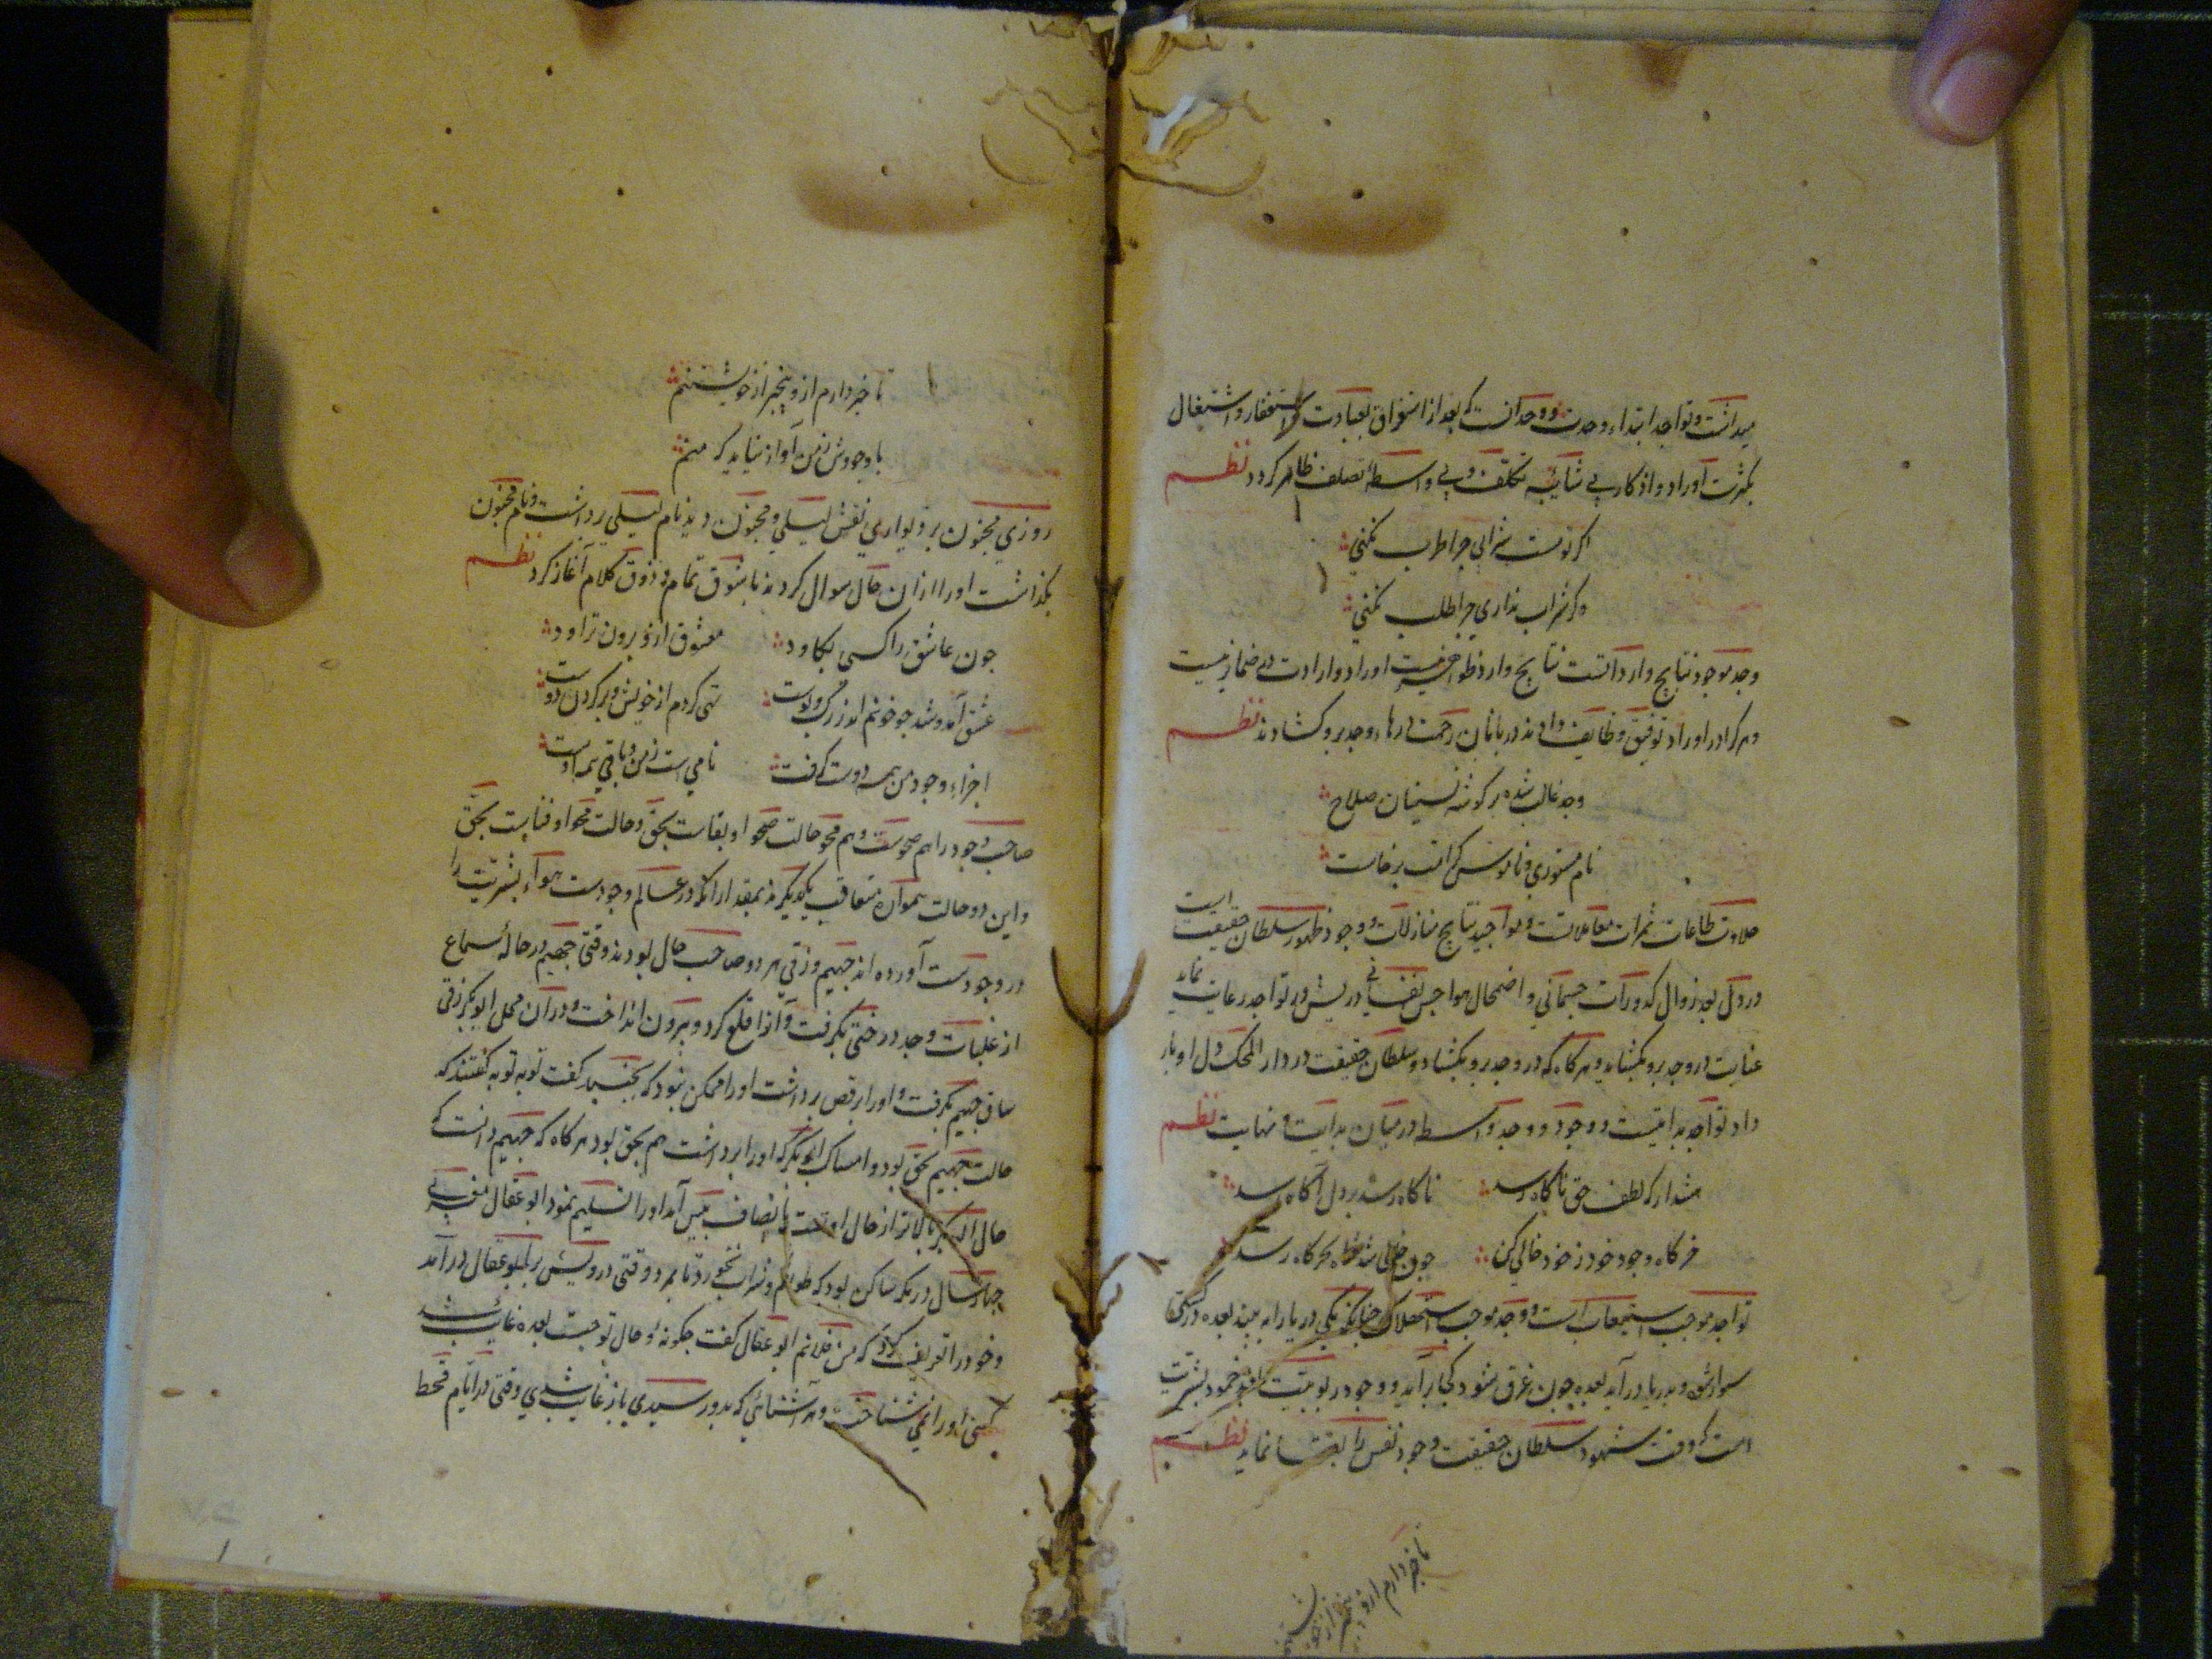 میدانست و تواجد ابتداء وحدت و وجد آنست که بعد از استغراق بعبادت استغفار و اشتغال
بکثرت اوراد و اذکار بی شایبه تکلف و بی واسطه تصلف ظاهر کردد نظم
اکر تو مست شرابی چرا طرب نکنی
وکر شراب نداری چرا طلب نکنی
وجد موجود نتایج وارداتست نتایج وارد اوراد و ارادت
وهر کرا در اوراد توفیق وظایف دادند دربانان رحمت درهاء وجد بر و کشادند نظم
وجد غالب شده بر کوشه نشینان صلاح
نام مستوری و ناموس کرامت برخاست
حلاوت طاعات ثمرات معاملاتست و مواجید نتایج منازلات و وجود ظهور سلطان حقیقت است
در دل بعد زوال کدورات جسمانی و اضمحلال هواجس نفسانی درویش در تواجد رعایت نماید
عنایت در وجد برو بکشاید و هر کاه که در وجد برو بکشاد و سلطان حقیقت در دار الملک دل او بار
داد تواجد بدایتست و وجود و وجد واسطه درمیان بدایت و نهایت نظم
هشدار که لطف حق ناکاه رسد ناکاه رسد بر دل آکاه رسد
خرکاه وجود خود ز خود خالی کن چون خالی شد شاه بخرکاه رسد
تواجد موجب استیعاب است و وجد موجب استغراق چنانکه یکی دریا را به بیند بعده در کشتی
سوار شود و بدریا در آید بعده چون غرق شود کجا بر آید و وجود در بوبیت بعد خمود بشریت
است که وقت شهود سلطان حقیقت وجود نفس را بقا نماید نظم
تا خبر دارم ازو بیخبر از خویشتنم
تا خبر دارم ازو بیخبر از خویشتنم
با وجودش ز من آواز نیاید که منم
روزی مجنون بر دیواری نقش لیلی و مجنون دید نام لیلی برداشت و نام مجنون
بکذاشت او را ازان حال سوال کردند با شوق تمام و ذوق کلام آغاز کرد نظم
چون عاشق را کسی بکاود معشوق ازو برون تراود
عشق آمد و شد چو خونم اندر رک و پوست تهی کردم از خویش و پر کردن دوست
اجزاء وجود من همه دوست کرفت نامی است ز من و باقی همه اوست
صاحب وجود را هم صحوست و هم محو حالت صحو او بقاست بحق و حالت محو او فناست بحق
واین دو حالت هموآره متعاقب یکدیکرند بمقدار آنکه در عالم وجودست هواء بشریت را
در وجودست آورده اند جهیم و زقی هر دو صاحب حال بودند وقتی جهیم در حاله سماع
از غلبات وجد درختی بکرفت و آنرا قلع کرد و بیرون انداخت و در آن محل ابو بکر زقی
ساق جهیم بکرفت و او را از رقص برداشت او را ممکن نبود که بجنبد کفت توبه توبه کفتند که
حالت جهیم بحق بود و امساک ابو بکر که او را برداشت هم بحق بود هر کاه که جهیم دانست که
حال ابو بکر بالاتر از حال اوست بانصاف پیش آمد او را تسلیم نمود ابو عقال مغربی
چهار سال در مکه ساکن بود که طعام و شراب نخورد تا بمرد وقتی درویشی بر ابو عقال در آمد
و خود را تعریف کرد که من فلانم ابو عقال کفت چکونه و حال تو چیست بعده غایب شد
کسی او را نمی شناخت و هر آشنائی که بدو رسیدی باز غایب شدی وقتی در ایام قحط